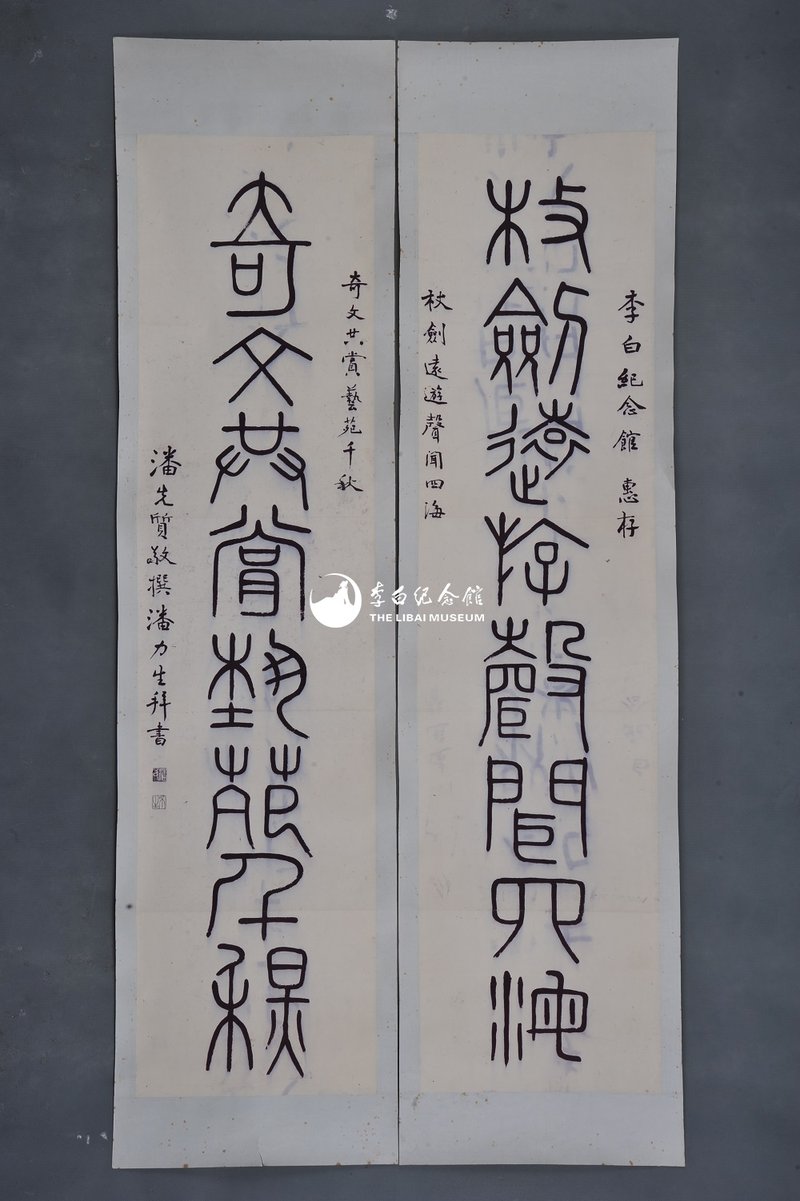 李白紀念館 惠存
杖劍遠游聲聞四海
杖劍遠遊聲聞四海
奇文共賞藝苑千秋
奇文共賞藝苑千秋
潘先質敬撰潘力生拜書
李白纪念館
THE LIBAI MUSEUM